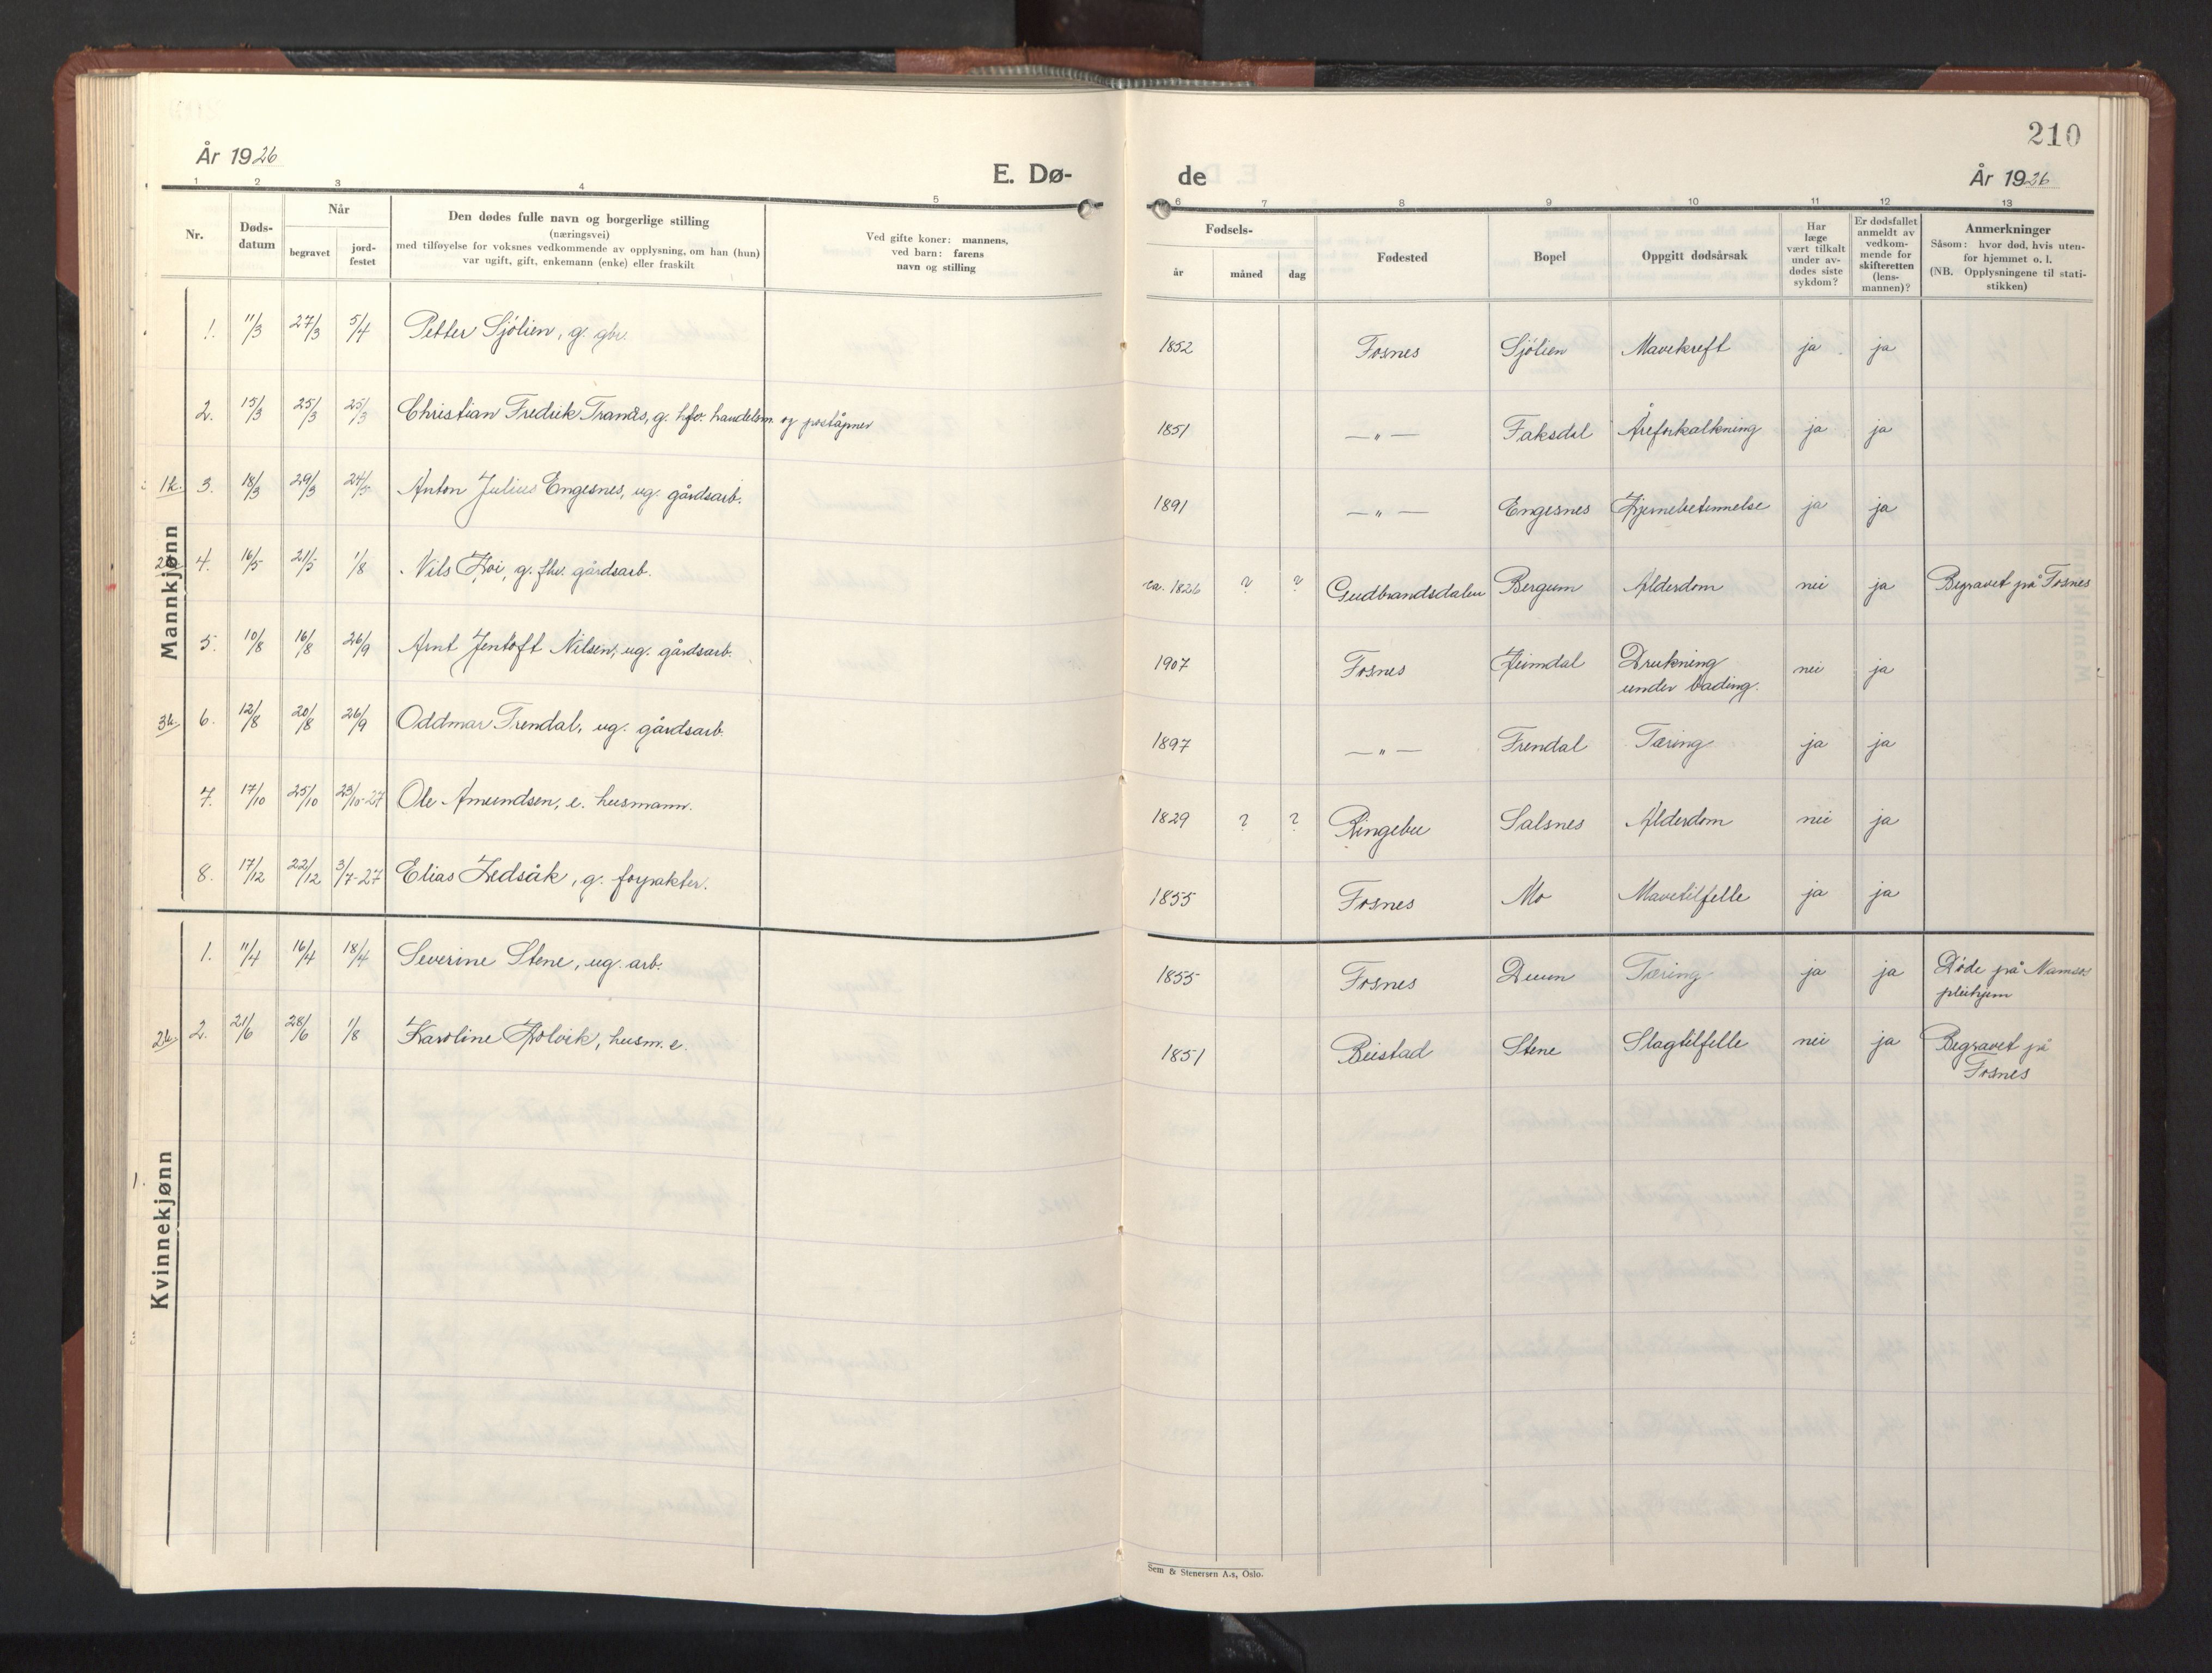 210
År 1926
E. Dø-
de
År 1926
1 2 3 4 5 6 7 8 9 10 11 12 13
Nr.
Døds-
datum
Når
begravet
jord-
festet
Den dødes fulle navn og borgerlige stilling
(næringsvei)
med tilføyelse for voksnes vedkommende av opplysning, om han (hun)
var ugift, gift, enkemann (enke) eller fraskilt
Ved gifte koner: mannens,
ved barn: farens
navn og stilling
Fødsels-
år
måned
dag
Fødested
Bopel
Oppgitt dødsårsak
Har
læge
vært tilkalt
under av-
dødes siste
sykdom?
Er dødsfallet
anmeldt av
vedkom-
mende for
skifteretten
(lens-
mannen)?
Anmerkninger
Såsom: hvor død, hvis uten-
for hjemmet o. l.
(NB. Opplysningene til stati-
stikken)
Mannkjønn
1. 11/3 27/3 5/4 Petter Sjölien, g. gbr. 1852 Fosnes Sjölien Mavekreft ja ja
2. 15/3 25/3 25/3 Christian Fredrik Tranås, g. hfv. handelsm. og poståpner 1851 —"— Faksdal Åreforkalkning ja ja
1k. 3. 18/3 29/3 24/5 Anton Julius Engesnes, ug. gårdsarb. 1891 —"— Engesnes Hjernebetennelse ja ja
4. 16/5 21/5 1/8 Nils Hoi, g. fhv. gårdsarb. ca. 1826 ? ? Gudbrandsdalen Bergum Alderdom nei ja Begravet på Fosnes
5. 10/8 16/8 26/9 Arnt Jentoft Nilsen, ug. gårdsarb. 1907 Fosnes Heimdal Drukning nei ja
under bading.
3k. 6. 12/8 20/8 26/9 Oddmar Frendal, ug. gårdsarb. 1897 —"— Frendal Tæring ja ja
7. 17/10 25/10 23/10-27 Ole Amundsen, e. husmann. 1829 ? ? Ringebu Salsnes Alderdom nei ja
8. 17/12 22/12 3/7-27 Elias Hedsåk, g. forpakter. 1855 Fosnes Mo Mavetilfelle ja ja
Kvinnekjønn
1. 11/4 16/4 18/4 Severine Stene, ug. arb. 1855 Fosnes Duun Tæring ja ja Döde på Namsos
pleihjem
2k. 2. 21/6 28/6 1/8 Karoline Holvik, husm. e. 1851 Beistad Stene Slagtilfelle nei ja Begravet på
Fosnes
Sem & Stenersen A.s, Oslo.